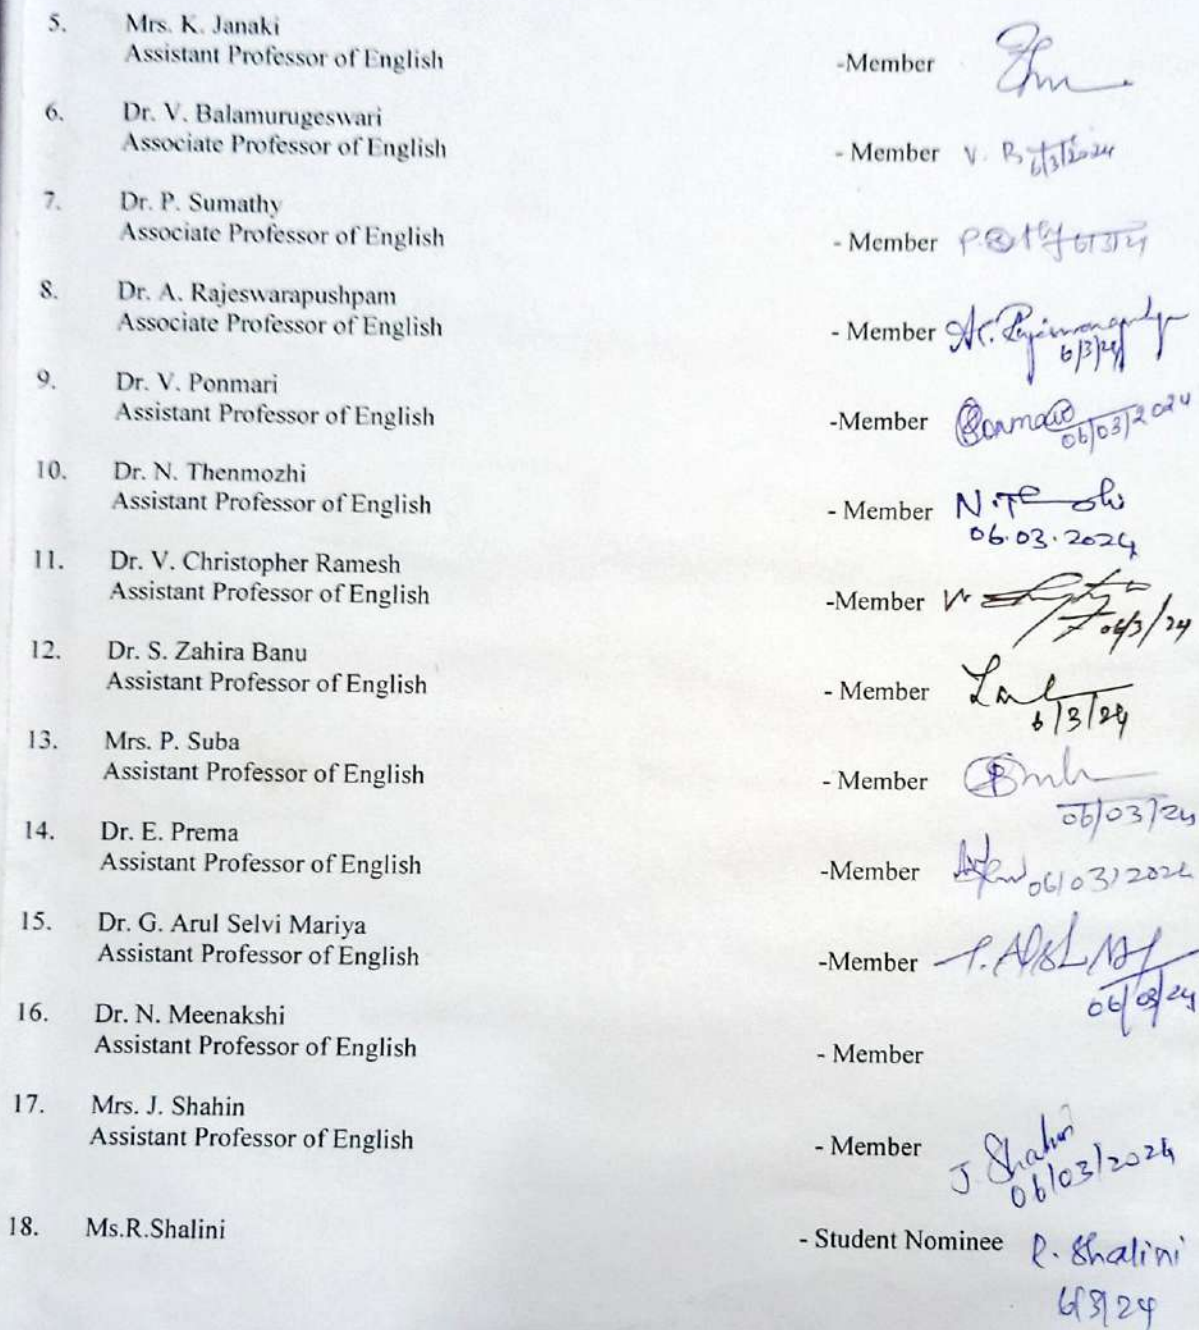 5. Mrs. K. Janaki
Assistant Professor of English -Member
6. Dr. V. Balamurugeswari
Associate Professor of English - Member V. B 6/3/2024
7. Dr. P. Sumathy
Associate Professor of English - Member P. 6/3/24
8. Dr. A. Rajeswarapushpam
Associate Professor of English - Member
6/3/24
9. Dr. V. Ponmari
Assistant Professor of English -Member
06/03/2024
10. Dr. N. Thenmozhi
Assistant Professor of English - Member N.
06.03.2024
11. Dr. V. Christopher Ramesh
Assistant Professor of English -Member
06/3/24
12. Dr. S. Zahira Banu
Assistant Professor of English - Member
6/3/24
13. Mrs. P. Suba
Assistant Professor of English - Member
06/03/24
14. Dr. E. Prema
Assistant Professor of English -Member 06/03/2024
15. Dr. G. Arul Selvi Mariya
Assistant Professor of English -Member
06/03/24
16. Dr. N. Meenakshi
Assistant Professor of English - Member
17. Mrs. J. Shahin
Assistant Professor of English - Member J. Shahin
06/03/2024
18. Ms.R.Shalini - Student Nominee R. Shalini
6/3/24